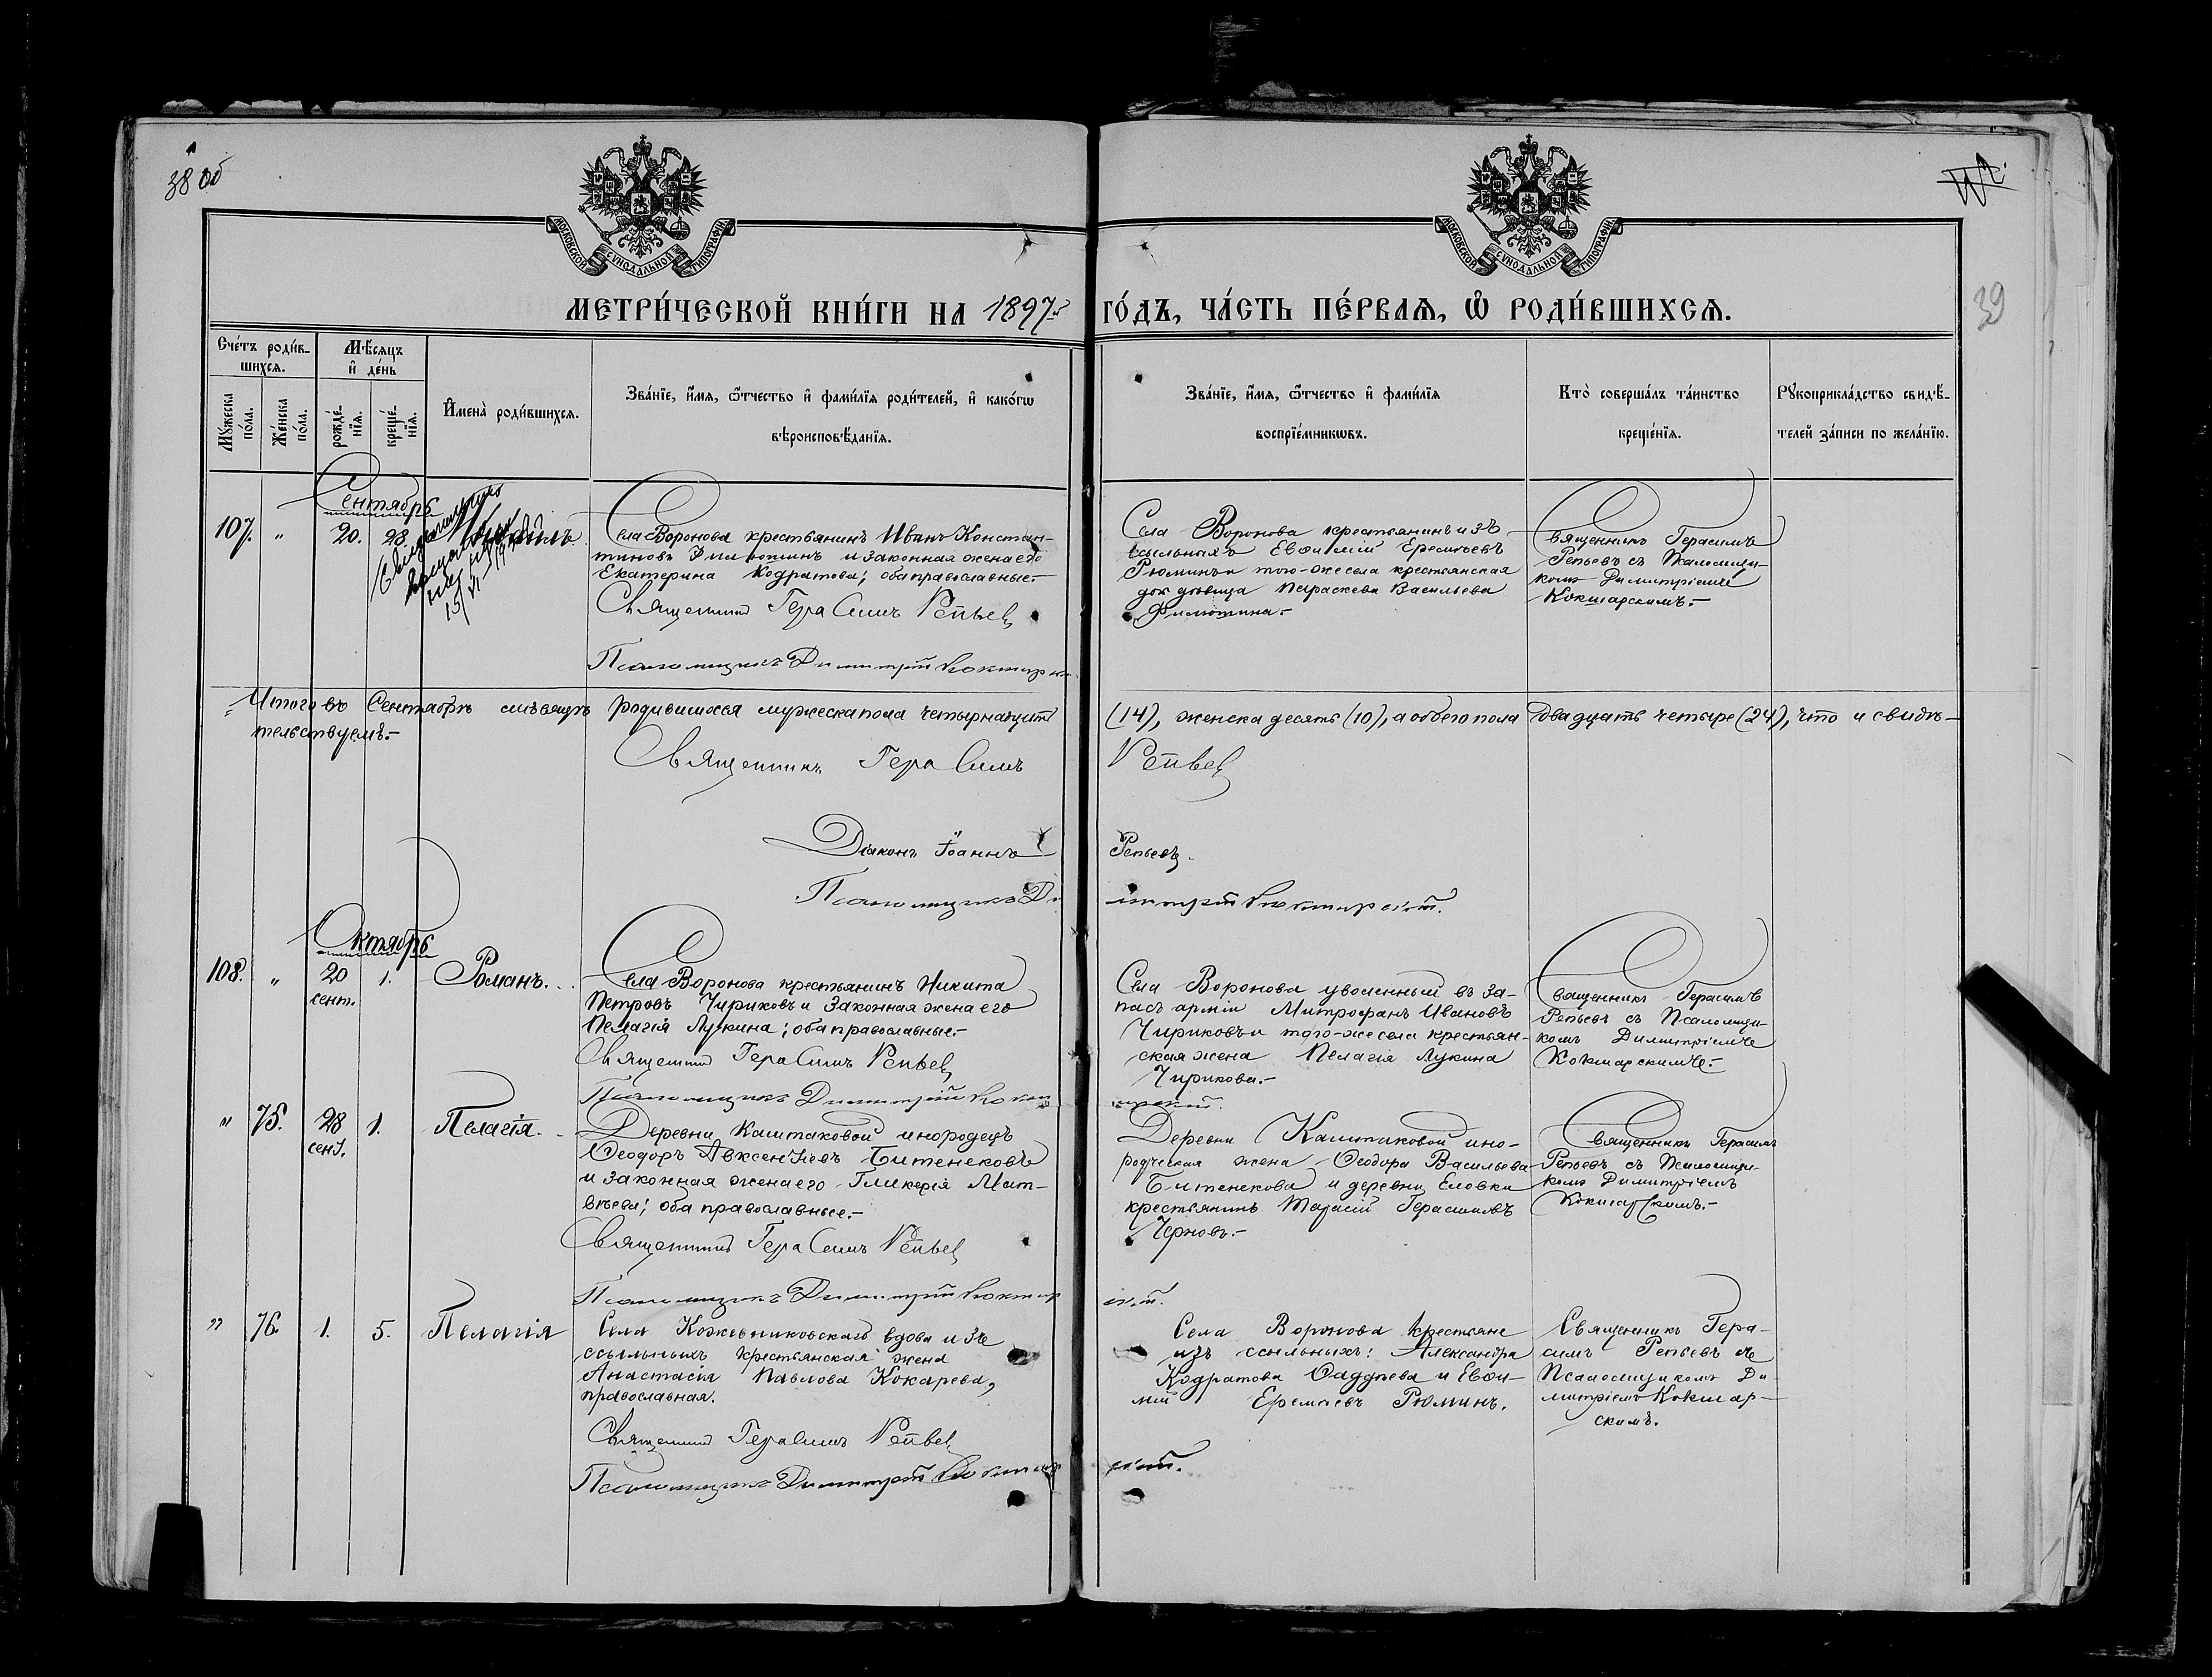 38 об
МОСКОВСКОЙ СѴНОДАЛЬНОЙ ТИПОГРАФІИ
МОСКОВСКОЙ СѴНОДАЛЬНОЙ ТИПОГРАФІИ
39
МЕТРИ́ЧЕСКОЙ КНИ́ГИ НА 1897 ГО́ДЪ, ЧА́СТЬ ПЕ́РВАѦ, Ѡ РОДИ́ВШИХСѦ.
Сче́тъ роди́в-
шихсѧ.
Мꙋ́жеска по́ла.
Же́нска по́ла.
Мѣ́сѧцъ и де́нь
рожде́-
нїѧ.
креще́-
нїѧ.
Имена̀ роди́вшихсѧ.
Зва́нїе, и́мѧ, ѻ҆́тчество и фами́лїѧ роди́телей, и како́гѡ
вѣроисповѣ́данїѧ.
Зва́нїе, и́мѧ, ѻ҆́тчество и фами́лїѧ
воспрїе́мникѡвъ.
Кто̀ соверша́лъ та́инство
креще́нїѧ.
Рꙋкоприкла́дство свидѣ́-
телей за́писи по жела́нїю.
Сентябрь
107. " 20. 28.
15/VI
Села Воронова крестьянинъ Иванъ Констан-
тиновъ Филюшинъ и законная жена его
Екатерина Кодратова; оба православные.-
Священникъ Герасимъ Репьевъ
Псаломщикъ Димитрій Кокшарскій
Села Воронова крестьянинъ изъ
ссыльныхъ Евѳимій Еремѣевъ
Рюминъ и того-же села крестьянская
дѣвица Параскева Васильева
Филюшина.-
Священникъ Герасимъ
Репьевъ съ Псаломщи-
комъ Димитріемъ
Кокшарскимъ.-
Итого въ Сентябрѣ мѣсяцѣ родившихся мужеска пола четырнадцать (14), женска десять (10), а обоего пола двадцать четыре (24), что и свидѣ-
тельствуемъ.-
Священникъ Герасимъ Репьевъ
Діаконъ Іоаннъ Репьевъ.
Псаломщикъ Димитрій Кокшарскій.
Октябрь
108. " 20 сент. 1. Романъ.
Села Воронова крестьянинъ Никита
Петровъ Чириковъ и законная жена его
Пелагія Лукина; оба православные.-
Священникъ Герасимъ Репьевъ
Псаломщикъ Димитрій Кокшарскій.
Села Воронова уволенный въ за-
пасъ арміи Митрофанъ Ивановъ
Чириковъ и того-же села крестьян-
ская жена Пелагія Лукина
Чирикова.-
Священникъ Герасимъ
Репьевъ съ Псаломщи-
комъ Димитріемъ
Кокшарскимъ.-
" 75. 28 сент. 1. Пелагія.
Деревни Каштаковой инородецъ
Ѳеодоръ Авксентіевъ Битенековъ
и законная жена его Гликерія Мат-
вѣева; оба православные.-
Священникъ Герасимъ Репьевъ
Псаломщикъ Димитрій Кокшарскій.
Деревни Каштаковой ино-
родческая жена Ѳеодора Васильева
Битенекова и деревни Еловки
крестьянинъ Тарасій Герасимовъ
Черновъ.-
Священникъ Герасимъ
Репьевъ съ Псаломщи-
комъ Димитріемъ
Кокшарскимъ.-
" 76. 1. 5. Пелагія
Села Кожевниковскаго вдова изъ
ссыльныхъ крестьянская жена
Анастасія Павлова Кокарева,
православная.
Священникъ Герасимъ Репьевъ
Псаломщикъ Димитрій Кокшарскій.
Села Воронова крестьяне
изъ ссыльныхъ: Александра
Кодратова Ѳаддѣева и Евѳи-
мій Еремѣевъ Рюминъ.
Священникъ Гера-
симъ Репьевъ съ
Псаломщикомъ Ди-
митріемъ Кокшар-
скимъ.